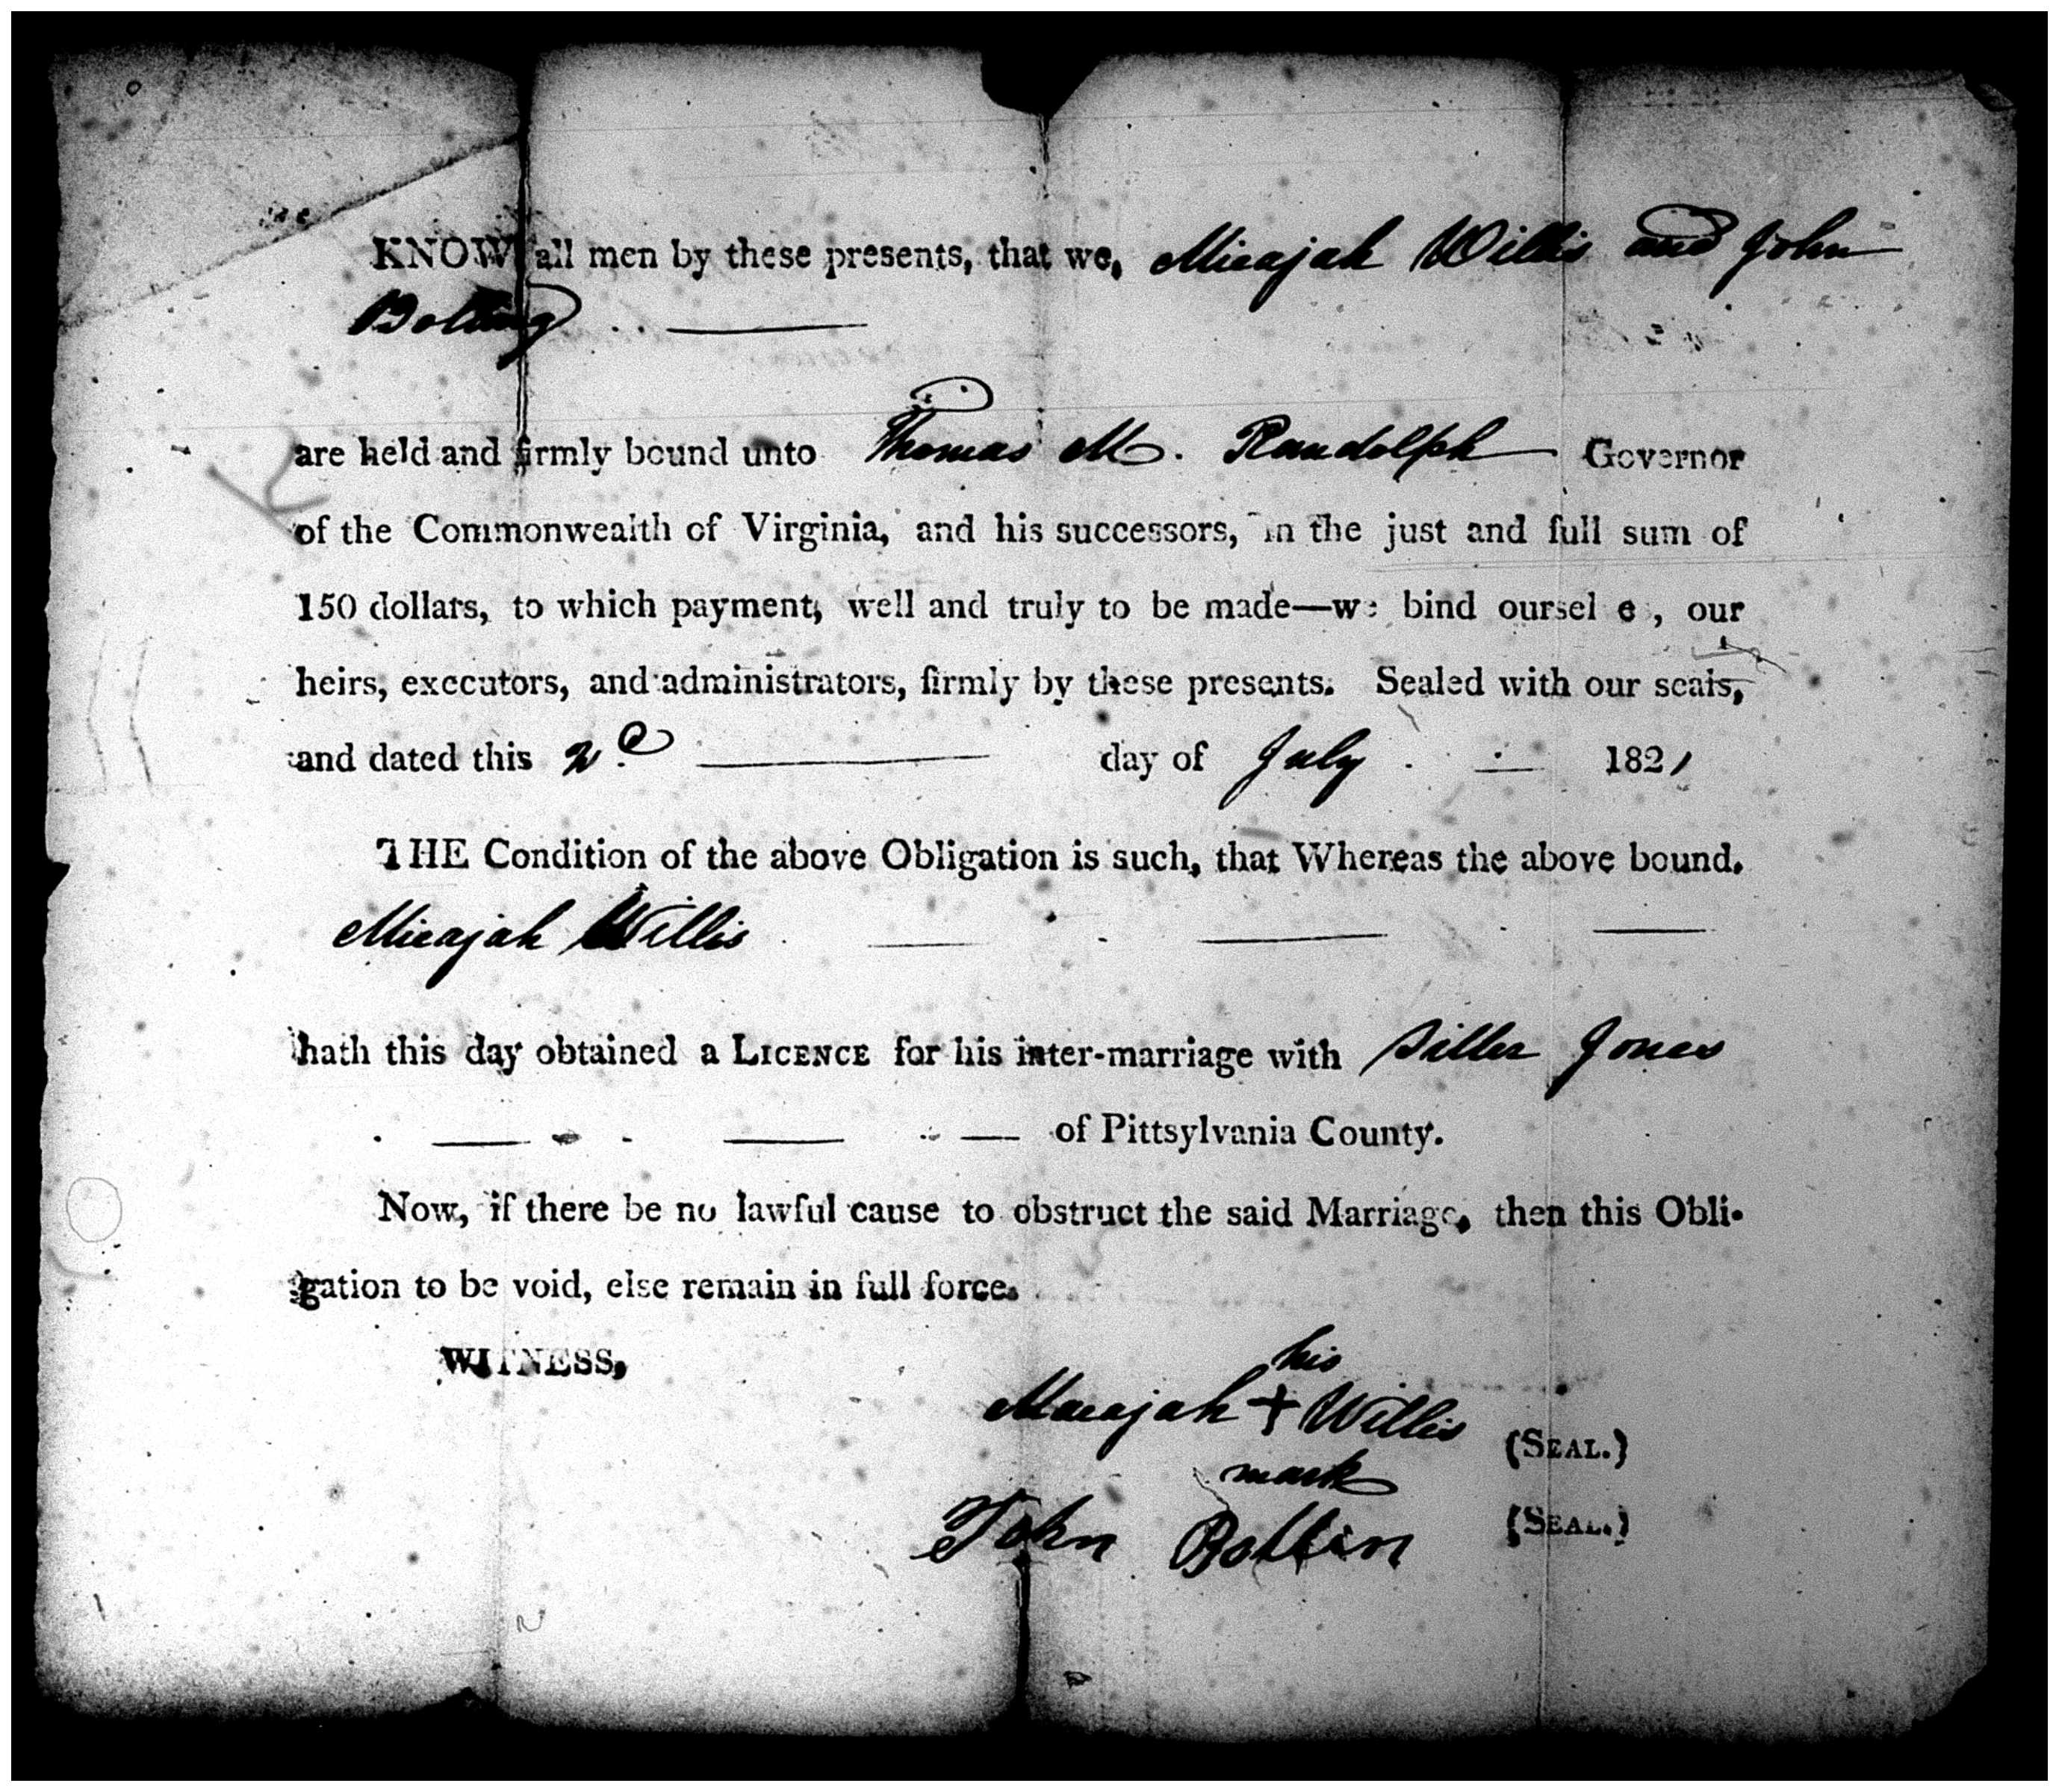 KNOW all men by these presents, that we, Micajah Willis and John
Bolling
are held and firmly bound unto Thomas M. Randolph Governor
of the Commonwealth of Virginia, and his successors, in the just and full sum of
150 dollars, to which payment, well and truly to be made—we bind oursel e , our
heirs, executors, and administrators, firmly by these presents. Sealed with our seals,
and dated this 2d day of July 1821
THE Condition of the above Obligation is such, that Whereas the above bound.
Micajah Willis
hath this day obtained a LICENCE for his inter-marriage with Siller Jones
of Pittsylvania County.
Now, if there be no lawful cause to obstruct the said Marriage, then this Obli-
gation to be void, else remain in full force.
WITNESS,
his
Macajah + Willis (SEAL.)
mark
John Bollin (SEAL.)